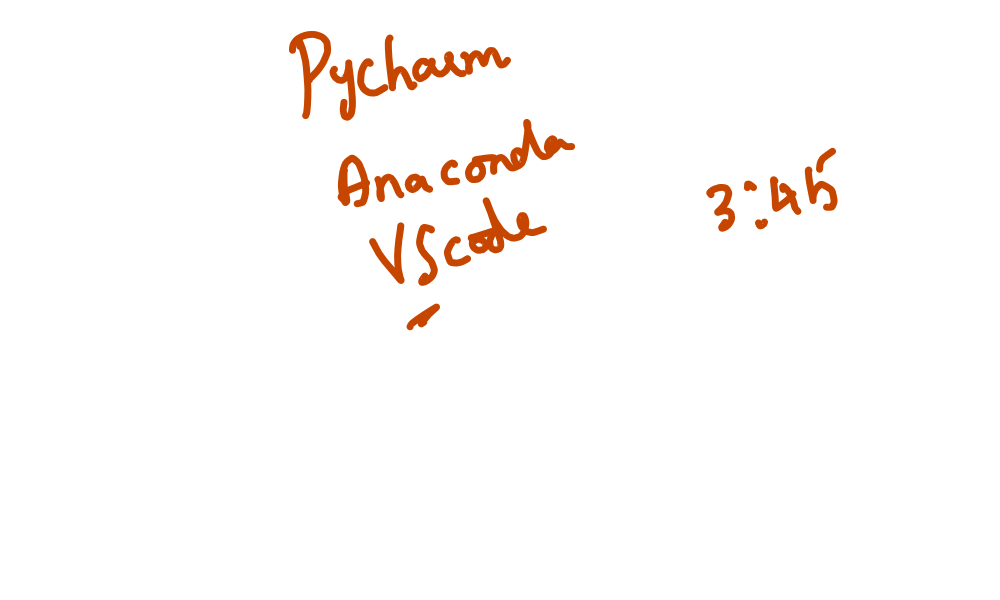 Pycharm
Anaconda
VScode
3:45